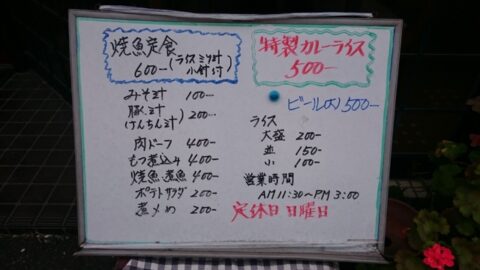 焼魚定食
600- (ライスミソ汁
小鉢付)
みそ汁 100-
豚汁
けんちん汁 200-
肉ドーフ 400-
もつ煮込み 400-
焼魚 煮魚 400-
ポテトサラダ 200-
煮〆め 200-
特製カレーライス
500-
ビール(大) 500-
ライス
大盛 200-
並 150-
小 100-
営業時間
AM11:30~PM3:00
定休日 日曜日